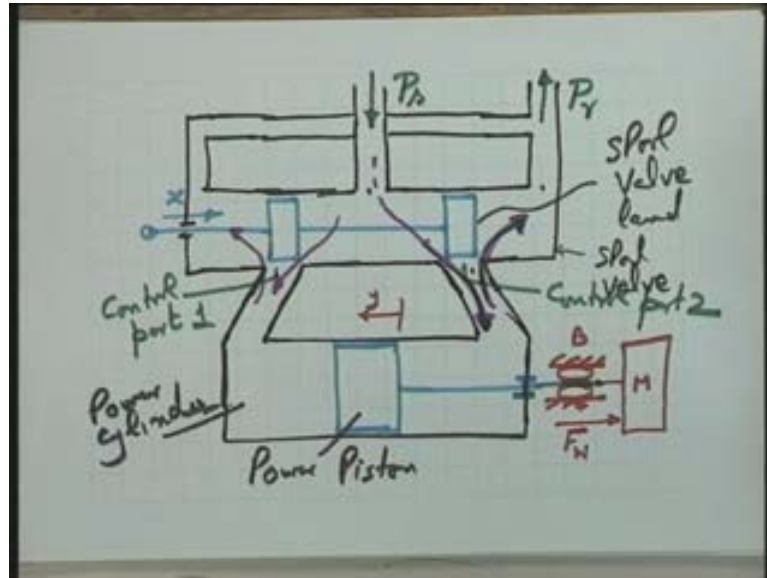 Ps
Pr
spool
valve
land
x
spool
valve
Control
port 1
y
Control port 2
B
M
Fw
Power
cylinder
Power Piston